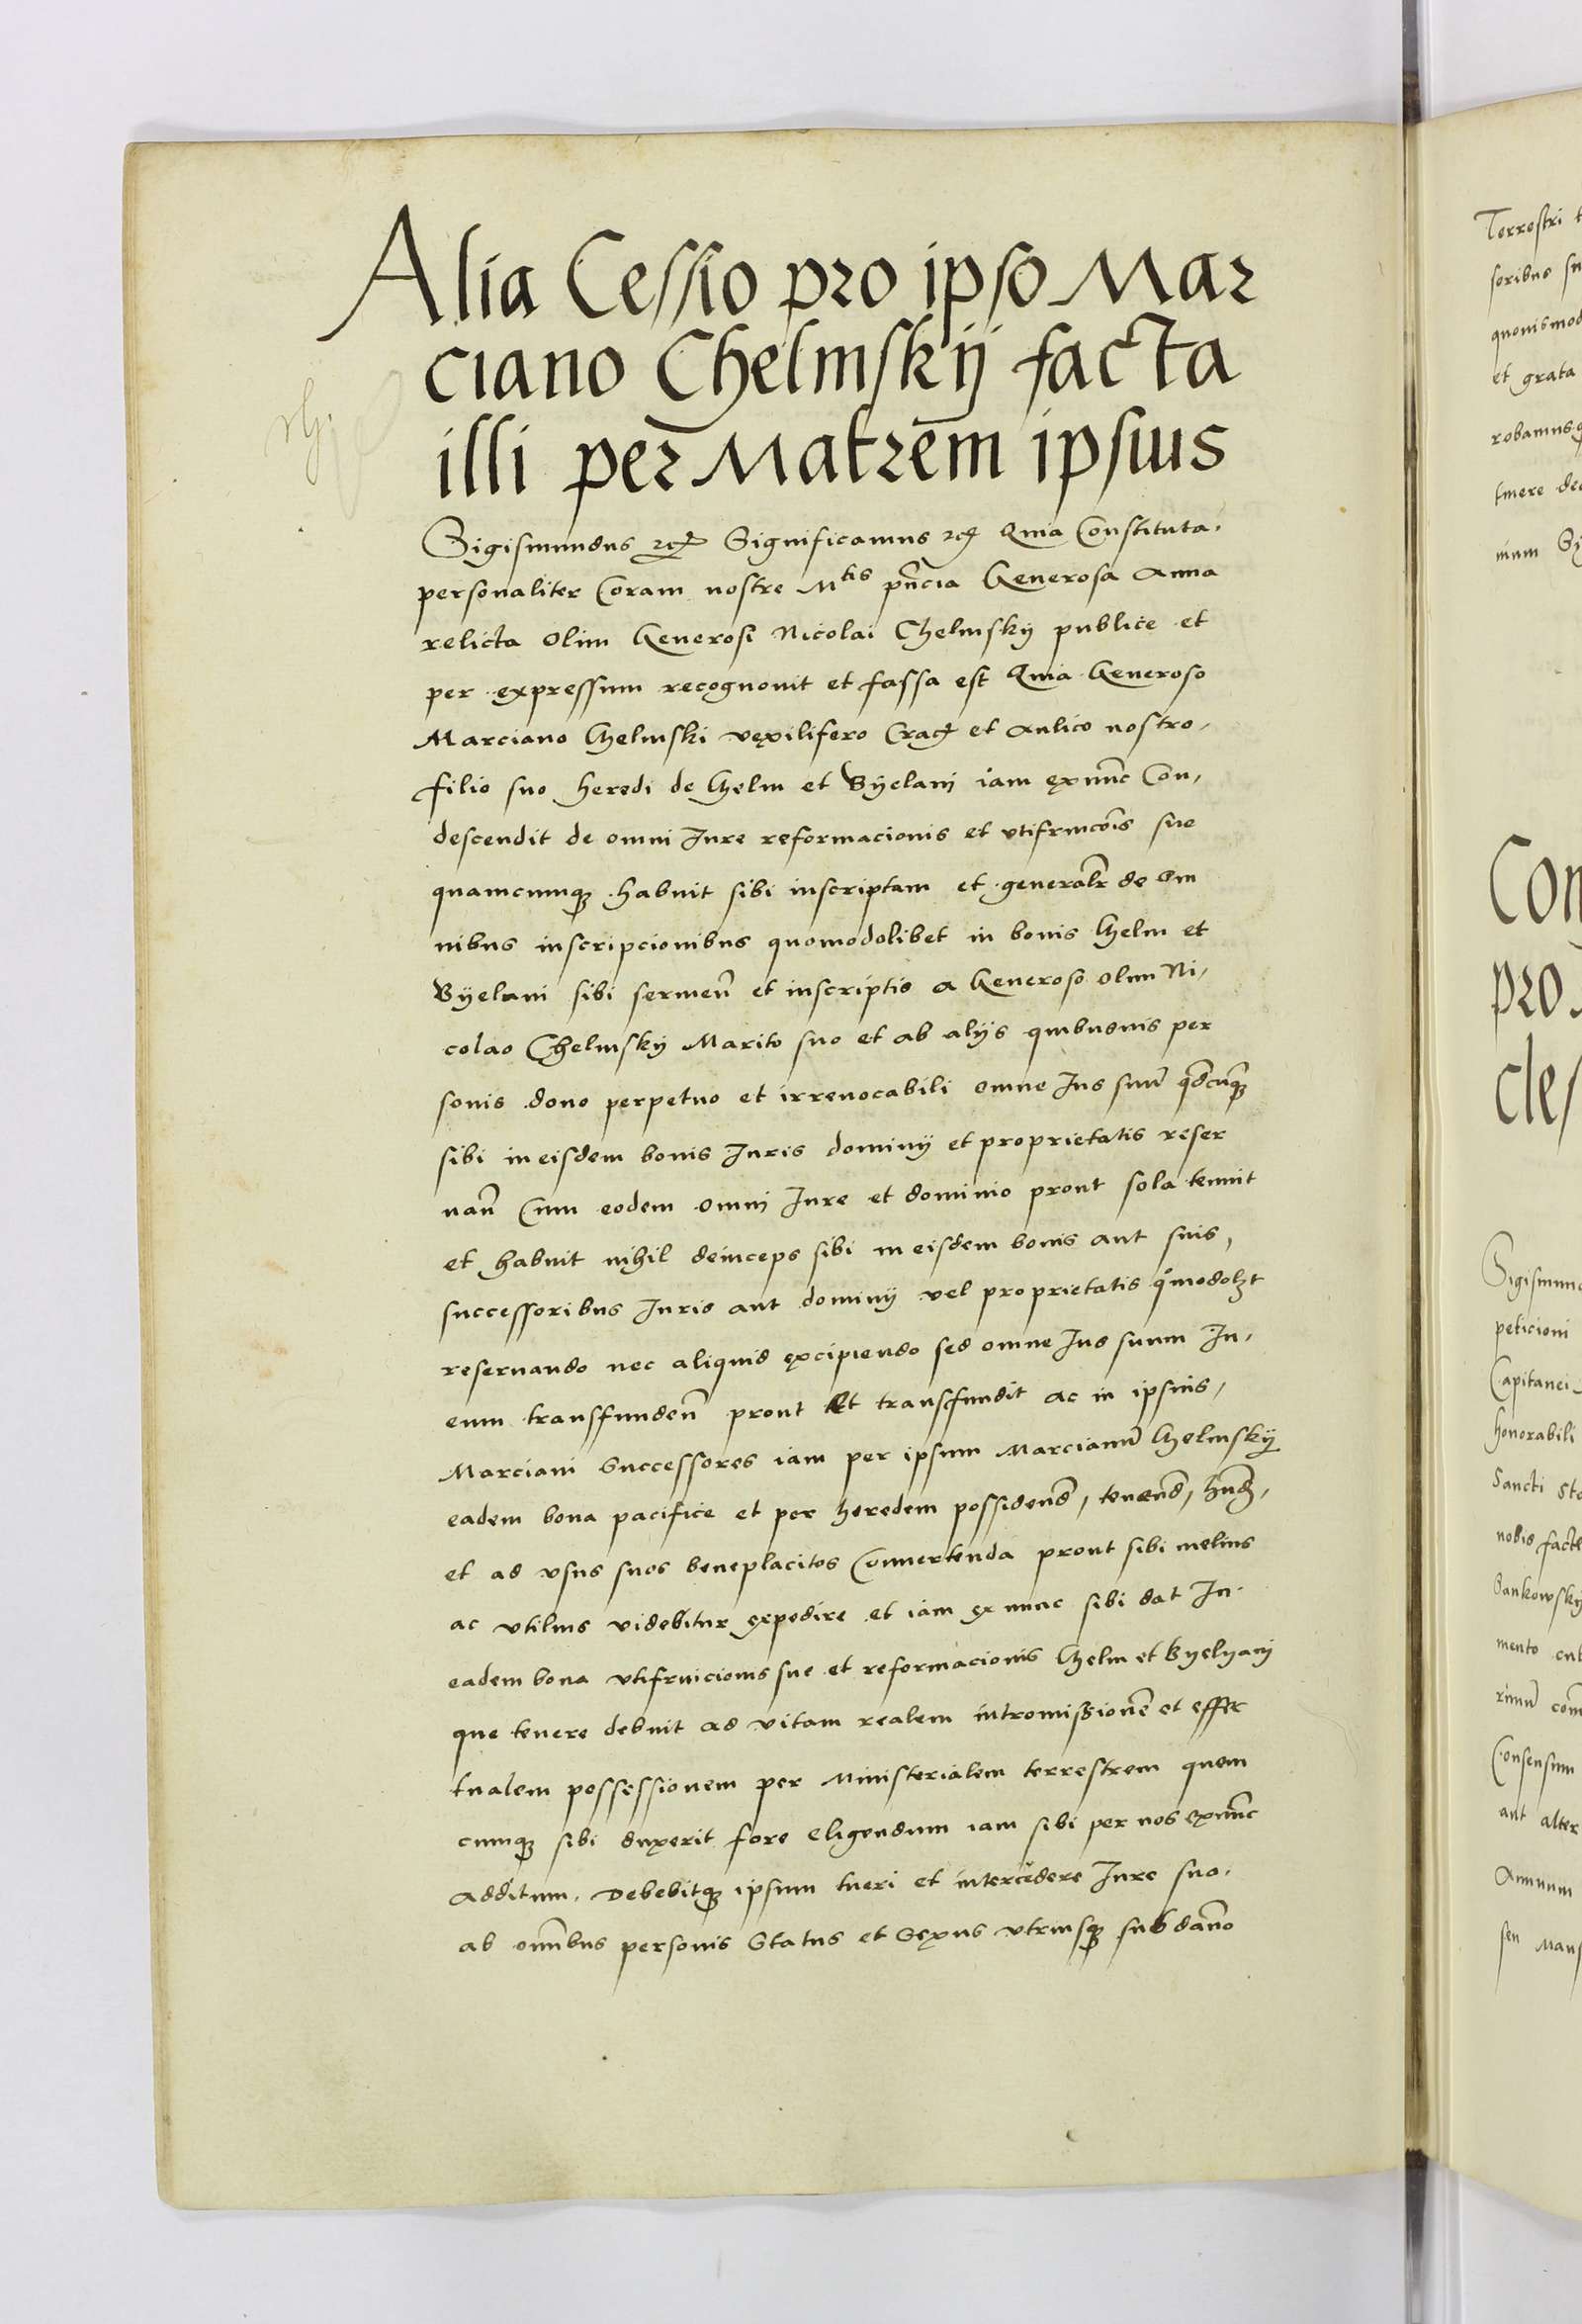 Alia Cessio pro ipso Mar
ciano Chelmskij facta
illi per Matrem ipsius
Sigismundus etc̃ Significamus etc̃ Quia Constituta.
personaliter Coram nostre Mtis pñcia Generosa Anna
relicta Olim Generosi Nicolai Chelmskij publice et
per expressum recognouit et fassa est Quia Generoso
Marciano Chelmski vexilifero Crac̃ et Aulico nostro,
filio suo heredi de Chelm et Byelani iam exnũc Con,
descendit de omni Iure reformacionis et vtifruicõis sue
quamcunq3 habuit sibi inscriptam et generalr̃ de om
nibus inscripcionibus quomodolibet in bonis Chelm et
Byelani sibi seruieñ et inscriptis a Generoso olim Ni,
colao Chelmskij Marito suo et ab alijs quibusuis per
sonis dono perpetuo et irreuocabili omne Ius suũ qdcũq3
sibi in eisdem bonis Iuris dominij et proprietatis reser
uañ Cum eodem omni Iure et dominio prout sola tenuit
et habuit nihil deinceps sibi in eisdem bonis aut suis,
successoribus Iuris aut dominij vel proprietatis qͦmodolzt
reseruando nec aliquid excipiendo sed omne Ius suum In,
eum transfundeñ prout Et transfundit ac in ipsius,
Marciani Successores iam per ipsum Marcianũ Chelmskij
eadem bona pacifice et per heredem possidend̃, tenend̃, hñd̃,
et ad vsus suos beneplacitos Conuertenda prout sibi melius
ac vtilius videbitur expedire et iam ex nunc sibi dat In
eadem bona vtifruicionis sue et reformacionis Chelm et Byelyanj
que tenere debuit ad vitam realem intromissionẽ et effec
tualem possessionem per Ministerialem terrestrem quem
cunq3 sibi duxerit fore eligendum iam sibi per nos exnũc
additum. Debebitq3 ipsum tueri et intercedere Iure suo.
ab omĩbus personis Status et Sexus vtriusq3 sub dam̃o
Terrestri
soribus
quouismod
et grata
robamus
tinere
Con
pro
cles
Sigismun
peticioni
Capitanei
honorabili
Sancti
nobis facte
mento
Consensum
aut alter
Annuum
seu